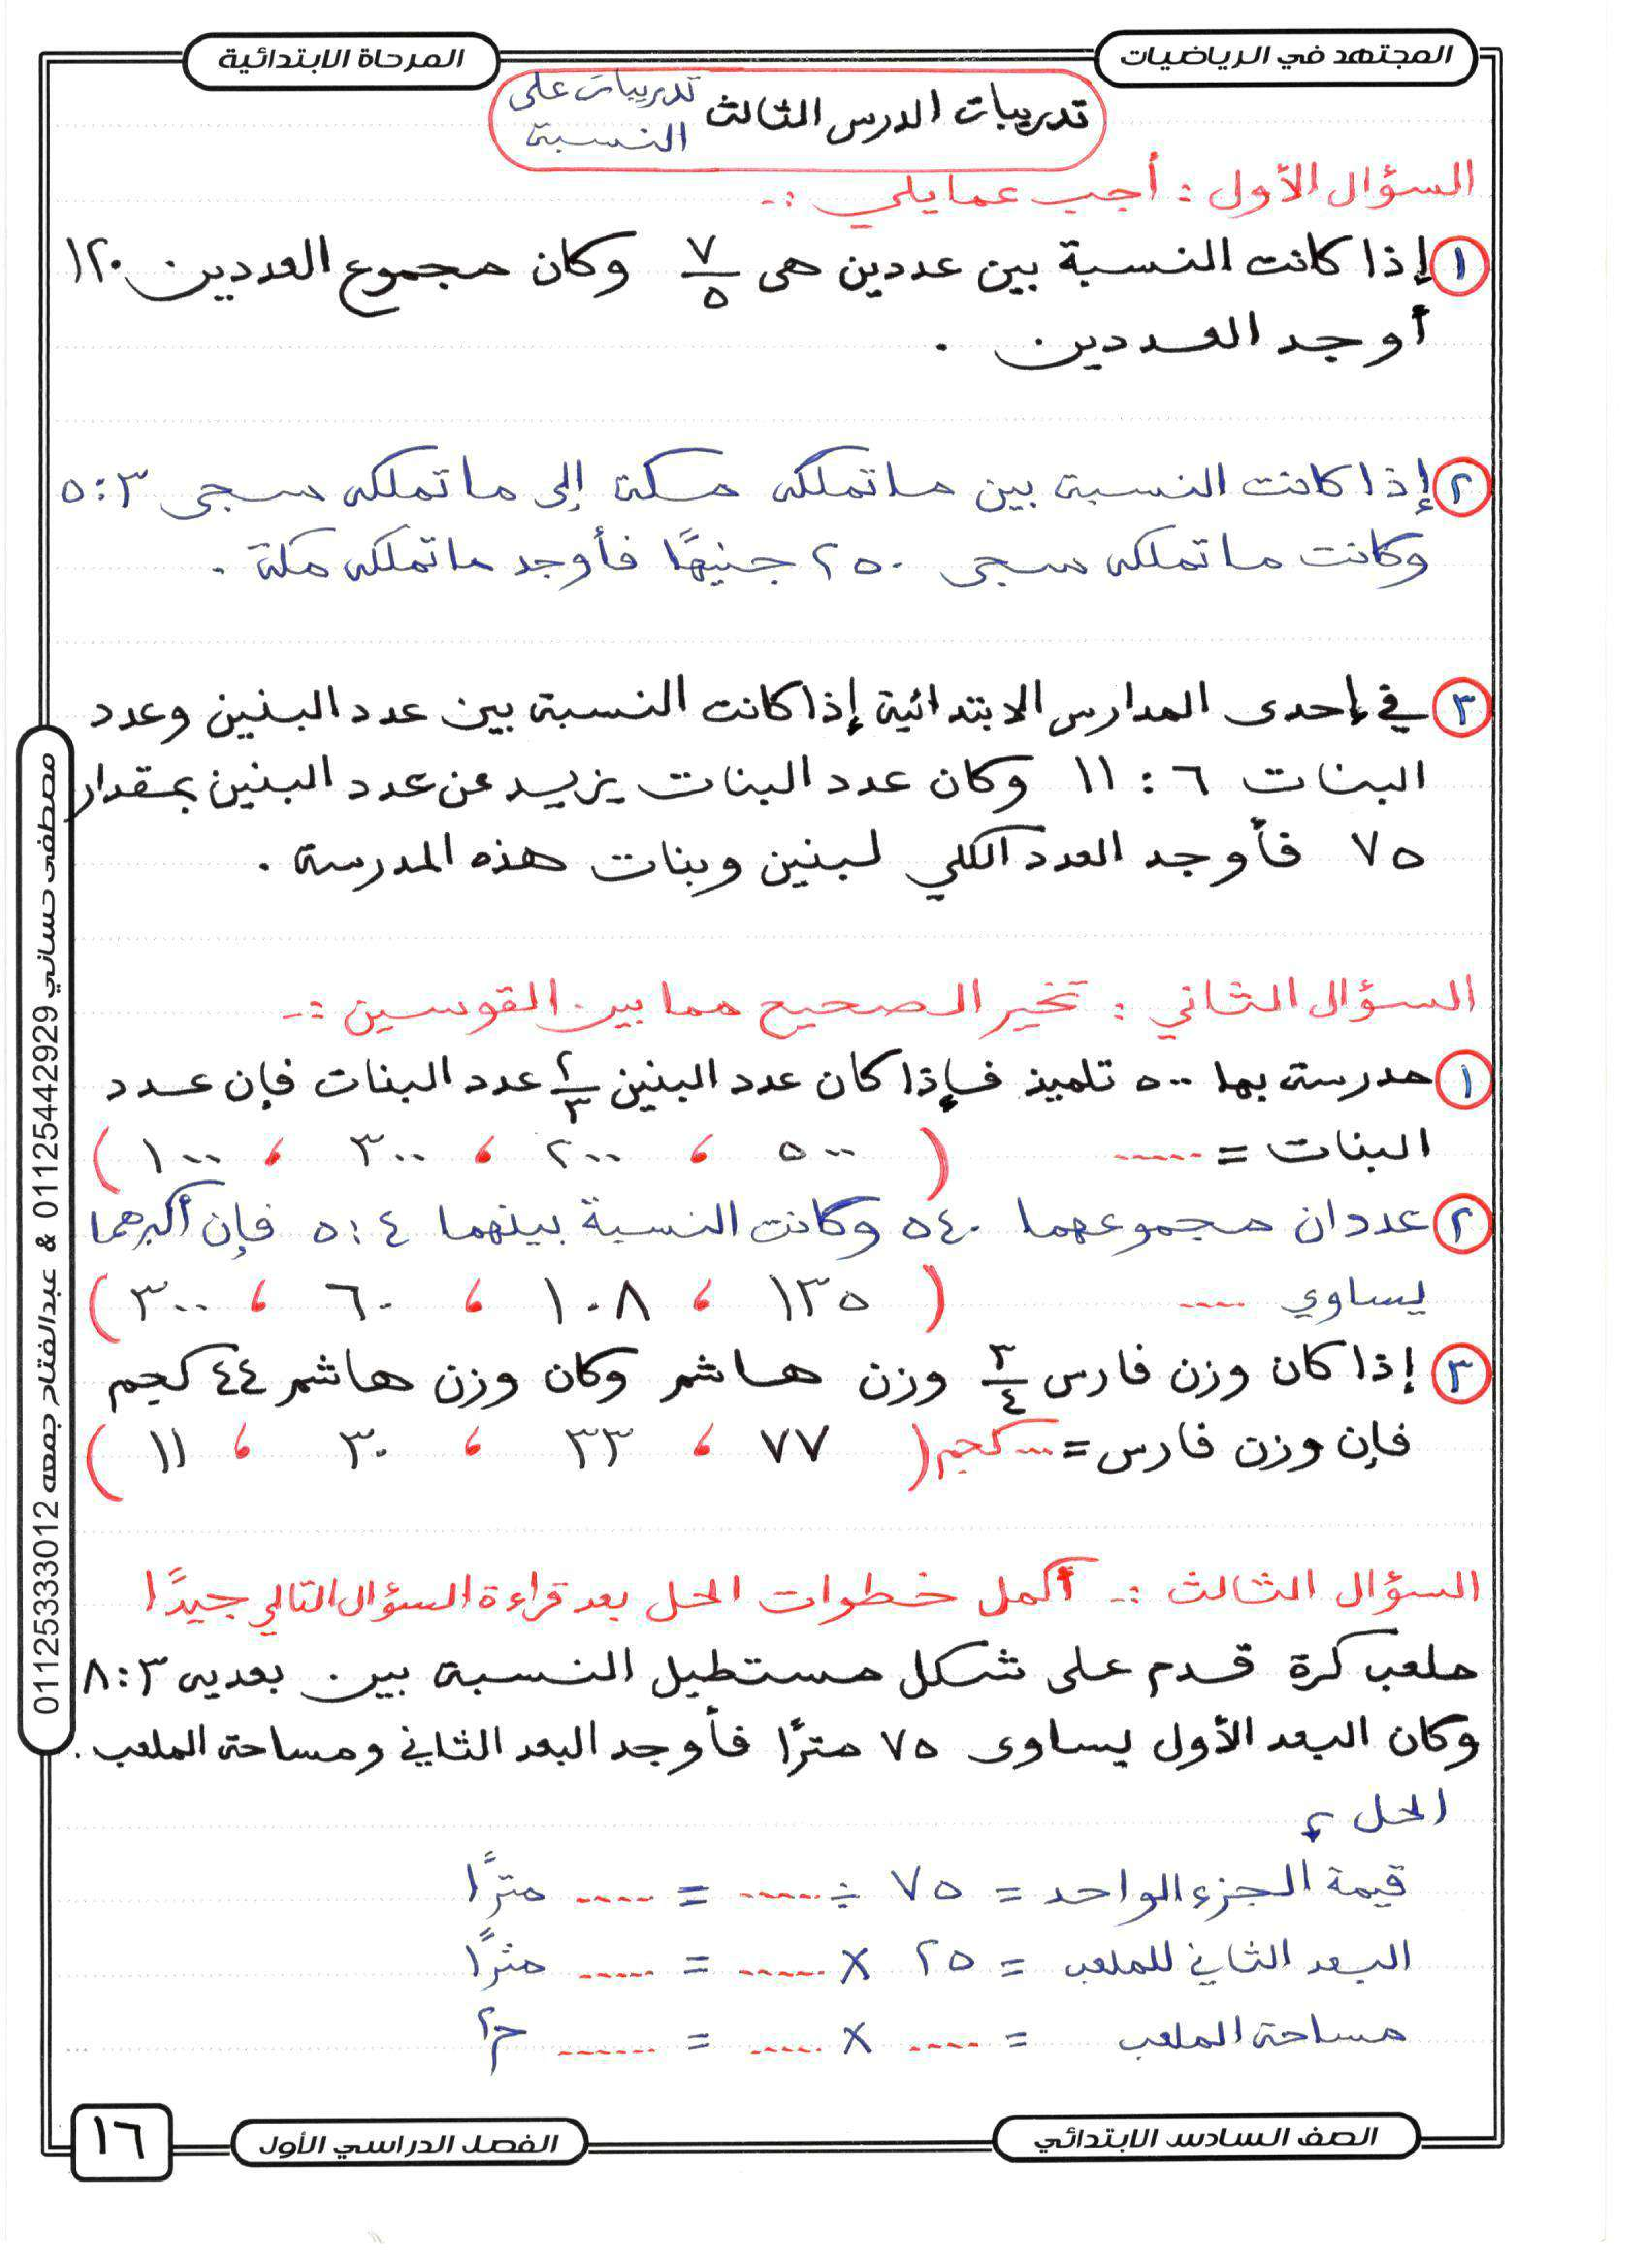 المجتهد في الرياضيات
المرحلة الابتدائية
تدريبات الدرس الثالث تدريبات على
النسبة
السؤال الأول : أجب عما يلي :-
١ إذا كانت النسبة بين عددين هى ٧/٥ وكان مجموع العددين ١٢٠
أوجد العددين .
٢ إذا كانت النسبة بين ما تملكه مكة إلى ما تملكه سجى ٣ : ٥
وكانت ما تملكه سجى ٢٥٠ جنيهًا فأوجد ما تملكه مكة .
٣ في إحدى المدارس الابتدائية إذا كانت النسبة بين عدد البنين وعدد
البنات ٦ : ١١ وكان عدد البنات يزيد عن عدد البنين بمقدار
٧٥ فأوجد العدد الكلي لبنين وبنات هذه المدرسة .
السؤال الثاني : تخير الصحيح مما بين القوسين :-
١ مدرسة بها ٥٠٠ تلميذ فإذا كان عدد البنين ٢/٣ عدد البنات فإن عدد
البنات = ...... ( ٥٠٠ ، ٢٠٠ ، ٣٠٠ ، ١٠٠ )
٢ عددان مجموعهما ٥٤٠ وكانت النسبة بينهما ٤ : ٥ فإن أكبرهما
يساوي .... ( ١٣٥ ، ١٠٨ ، ٦٠ ، ٣٠٠ )
٣ إذا كان وزن فارس ٣/٤ وزن هاشم وكان وزن هاشم ٤٤ كجم
فإن وزن فارس = ... كجم ( ٧٧ ، ٣٣ ، ٣٠ ، ١١ )
السؤال الثالث :- أكمل خطوات الحل بعد قراءة السؤال التالي جيدًا
ملعب كرة قدم على شكل مستطيل النسبة بين بعديه ٣ : ٨
وكان البعد الأول يساوى ٧٥ مترًا فأوجد البعد الثاني ومساحة الملعب .
الحل
قيمة الجزء الواحد = ٧٥ ÷ ...... = ..... مترًا
البعد الثاني للملعب = ٢٥ × ...... = ..... مترًا
مساحة الملعب = ..... × ..... = ....... م٢
مصطفى حساني 01125442929 & عبدالفتاح جمعه 01125333012
الصف السادس الابتدائي
الفصل الدراسي الأول
١٦